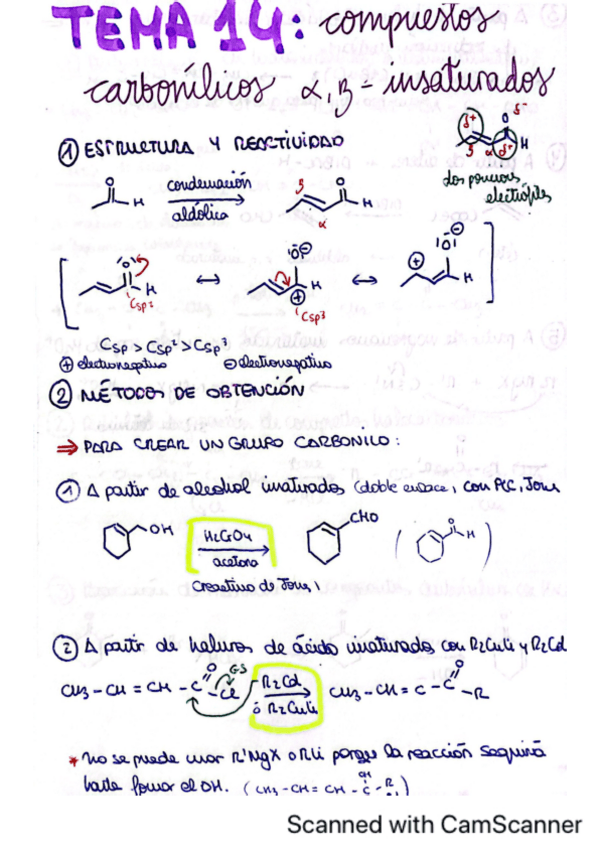 TEMA 14: compuestos
carbonílicos α,β-insaturados
① ESTRUCTURA Y REACTIVIDAD
condensación
aldólica
O
H
β
α
dos posiciones
electrófilas
δ+
δ-
Csp²
Csp³
Csp > Csp² > Csp³
⊕ electronegativo ⊖ electronegativo
② MÉTODOS DE OBTENCIÓN
⇒ PARA CREAR UN GRUPO CARBONILO:
① A partir de alcohol insaturados (doble enlace, con PCC, Jones
OH
H₂CrO₄
acetona
CHO
② A partir de haluros de ácido insaturados con R₂CuLi y R₂Cd
CH₃-CH=CH-C-Cl
G.S
R₂Cd
ó R₂CuLi
CH₃-CH=C-C-R
* No se puede usar R'MgX o RLi porque la reacción seguiría
hasta formar el OH. (CH₃-CH=CH-C-R
Scanned with CamScanner